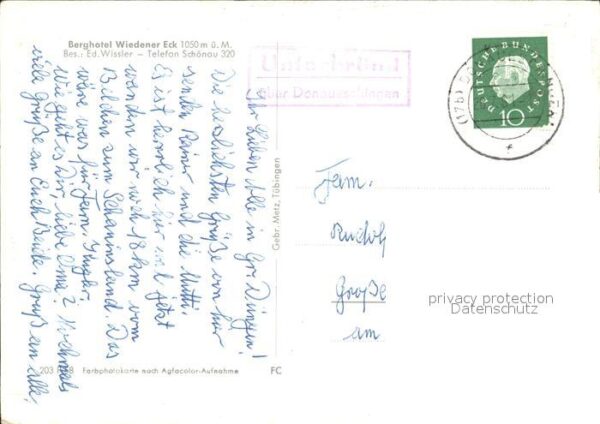 Berghotel Wiedener Eck 1050 m ü. M.
Bes.: Ed. Wissler – Telefon Schönau 320
Ihr Lieben Alle in Gr. Düngen!
Die herzlichsten Grüße von hier
senden Rainer und die Mutti.
Es ist herrlich hier und jetzt
wandern wir noch 18 km vom
Belchen zum Schauinsland. Das
wäre was für Fam.
Wie geht es Dir, liebe Oma? Nochmals
viele Grüße an Euch Beide. Gruß an alle,
203 8 Farbphotokarte nach Agfacolor-Aufnahme FC
Gebr. Metz, Tübingen
Unterbränd
über Donaueschingen
DEUTSCHE BUNDESPOST
10
(17b)
Fam.
Rudolf
Große
am
privacy protection
Datenschutz